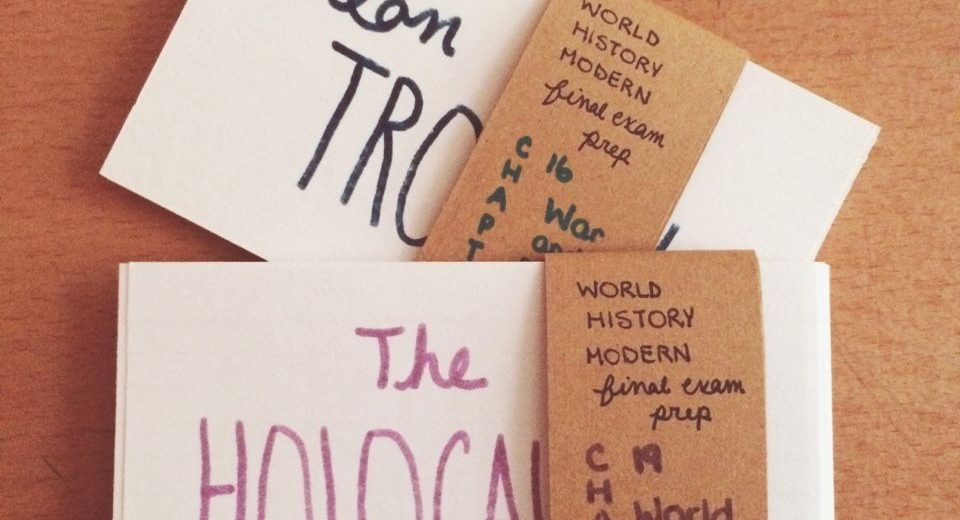 TRO
WORLD
HISTORY
MODERN
final exam
prep
CHAPT
16
War
The
HOLOCAU
WORLD
HISTORY
MODERN
final exam
prep
CHA
19
World